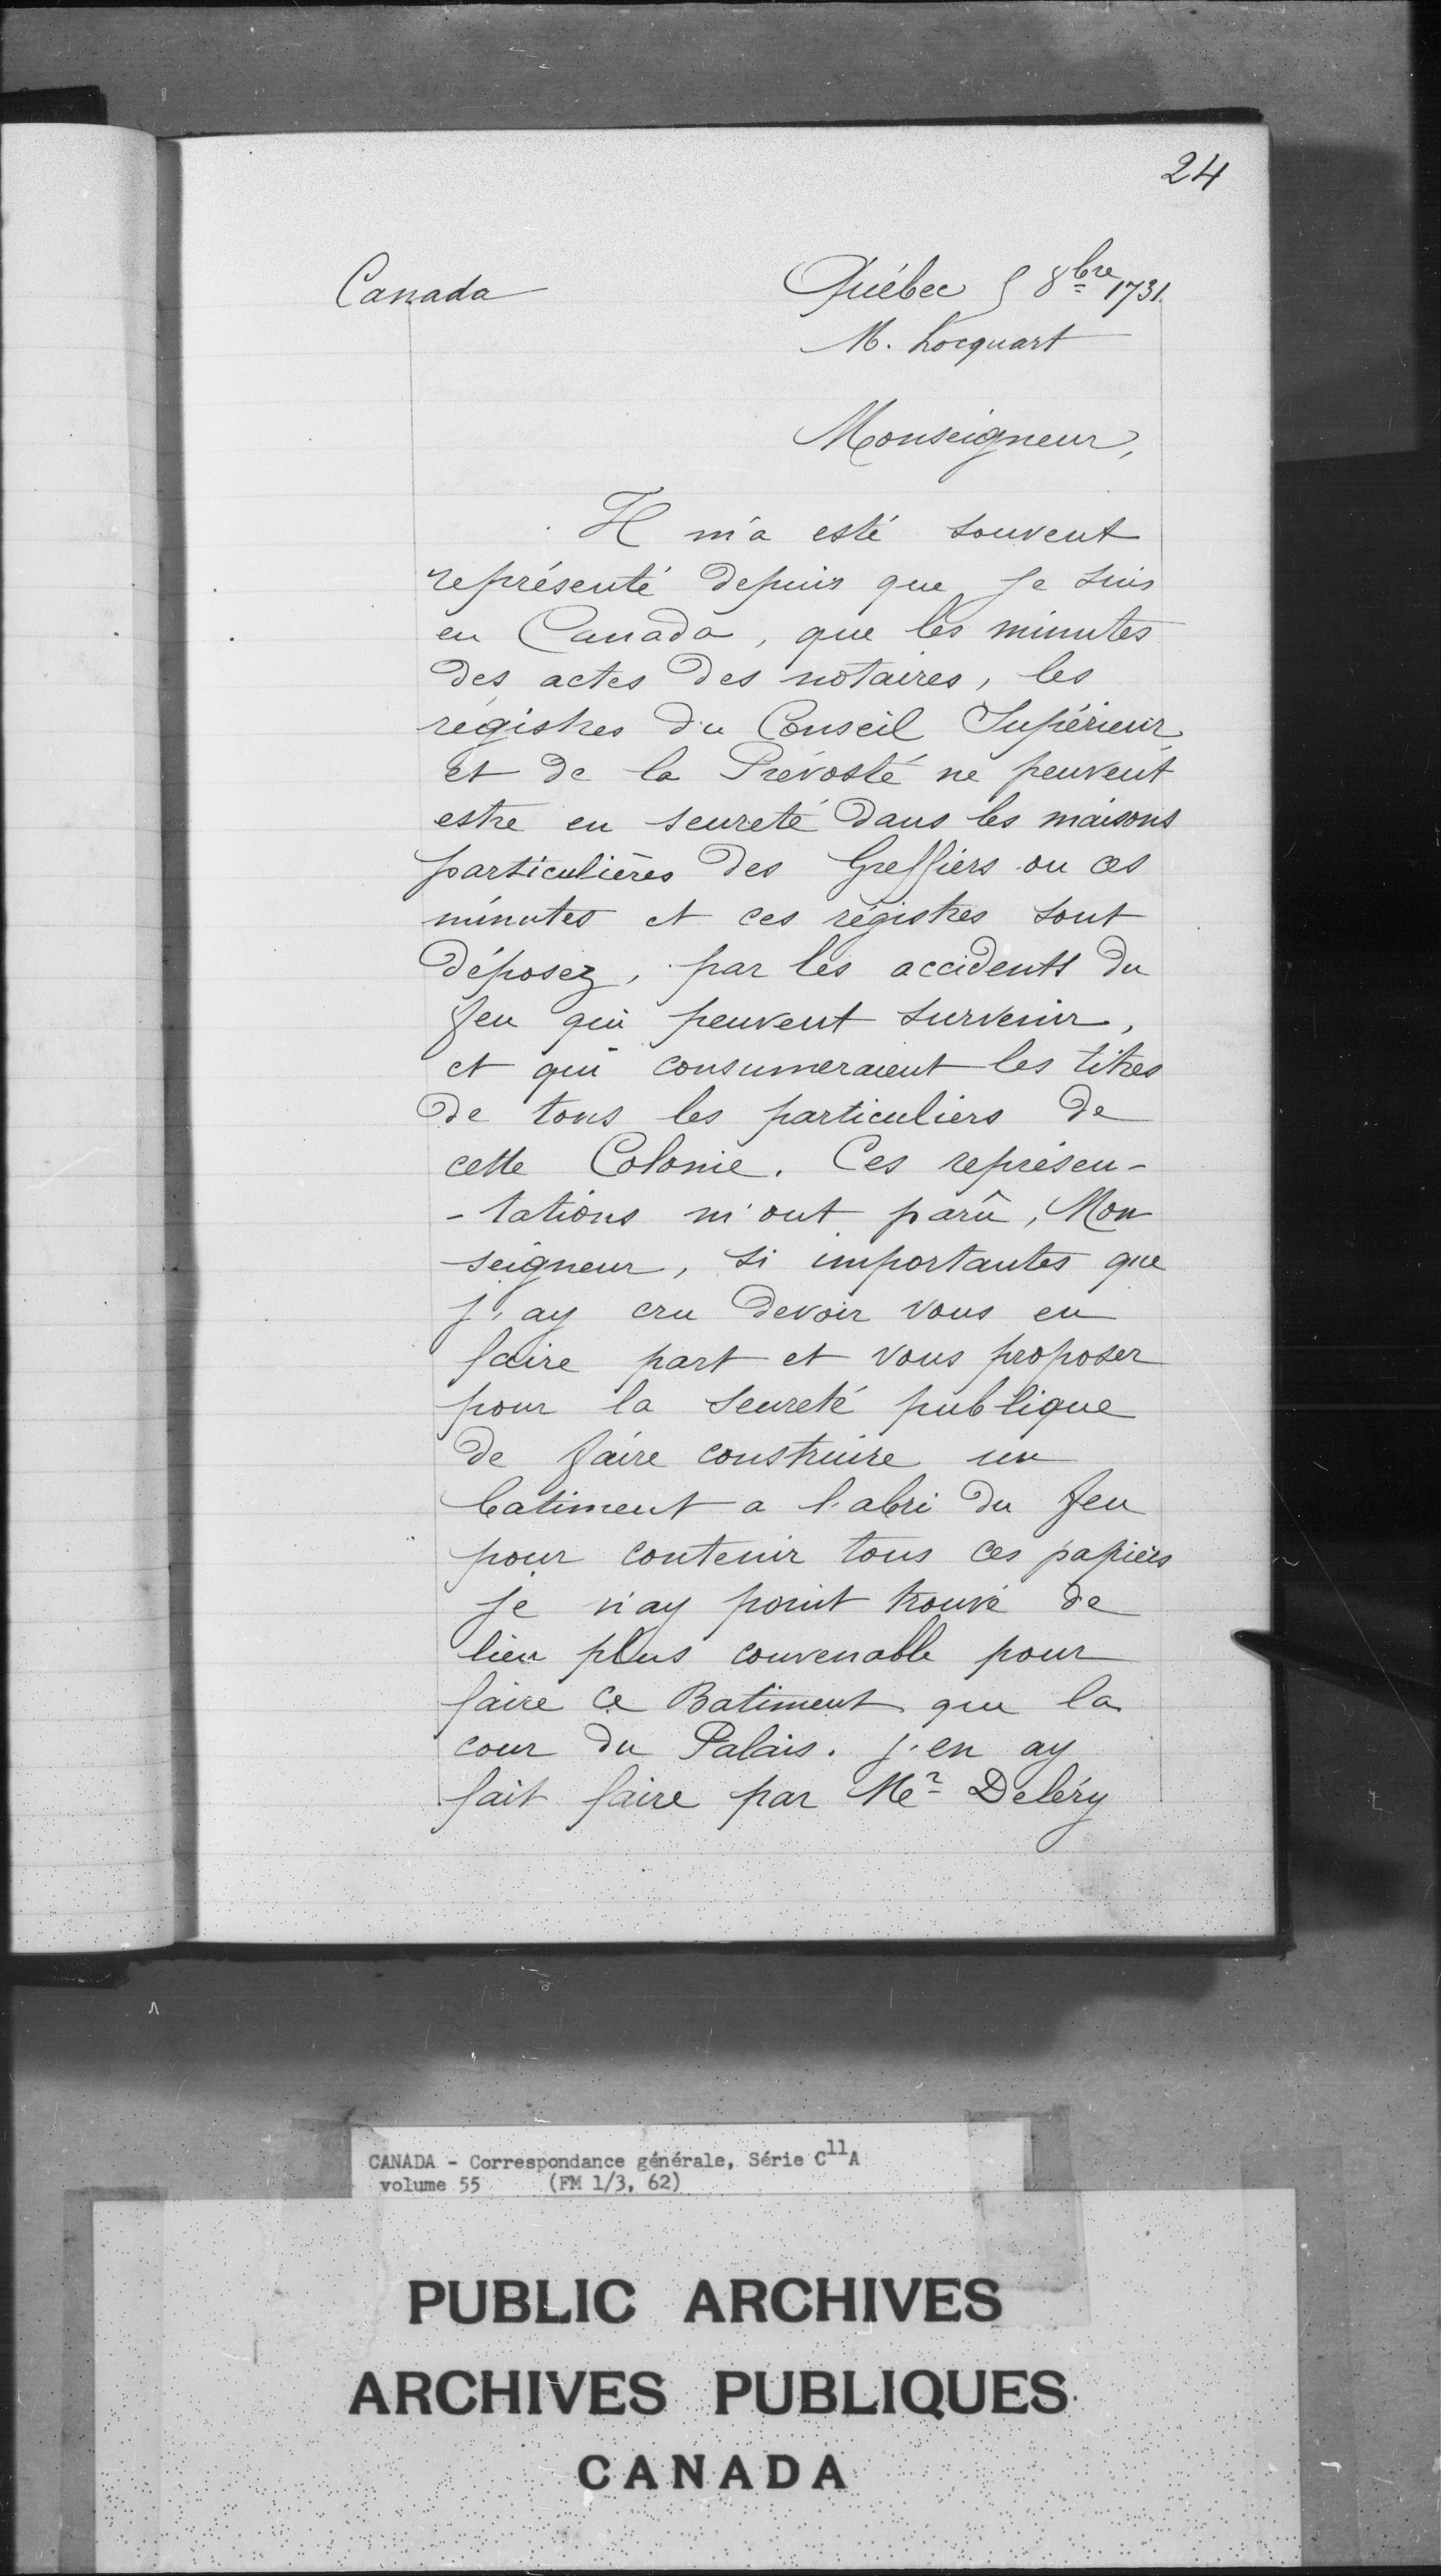 24
Canada
Québec 5 8bre 1731.
M. hocquart
Monseigneur,
Il m'a esté souvent
représenté depuis que je suis
en Canada, que les minutes
des actes des notaires, les
régistres du Conseil Supérieur
et de la Prévosté ne peuvent
estre en seureté dans les maisons
particulières des Greffiers ou ces
minutes et ces régistres sont
déposez, par les accidents du
feu qui peuvent survenir,
et qui consumeraient les titres
de tous les particuliers de
cette Colonie. Ces représen-
-tations m'ont parû, Mon
seigneur, si importantes que
j'ay cru devoir vous en
faire part et vous proposer
pour la seureté publique
de faire construire un
batiment a l'abri du feu
pour contenir tous ces papiers
je n'ay point trouvé de
lieu plus convenable pour
faire ce Batiment que la
cour du Palais. j'en ay
fait faire par Mer Deléry
CANADA - Correspondance générale, Série C11A
volume 55 (FM 1/3, 62)
PUBLIC ARCHIVES
ARCHIVES PUBLIQUES
CANADA